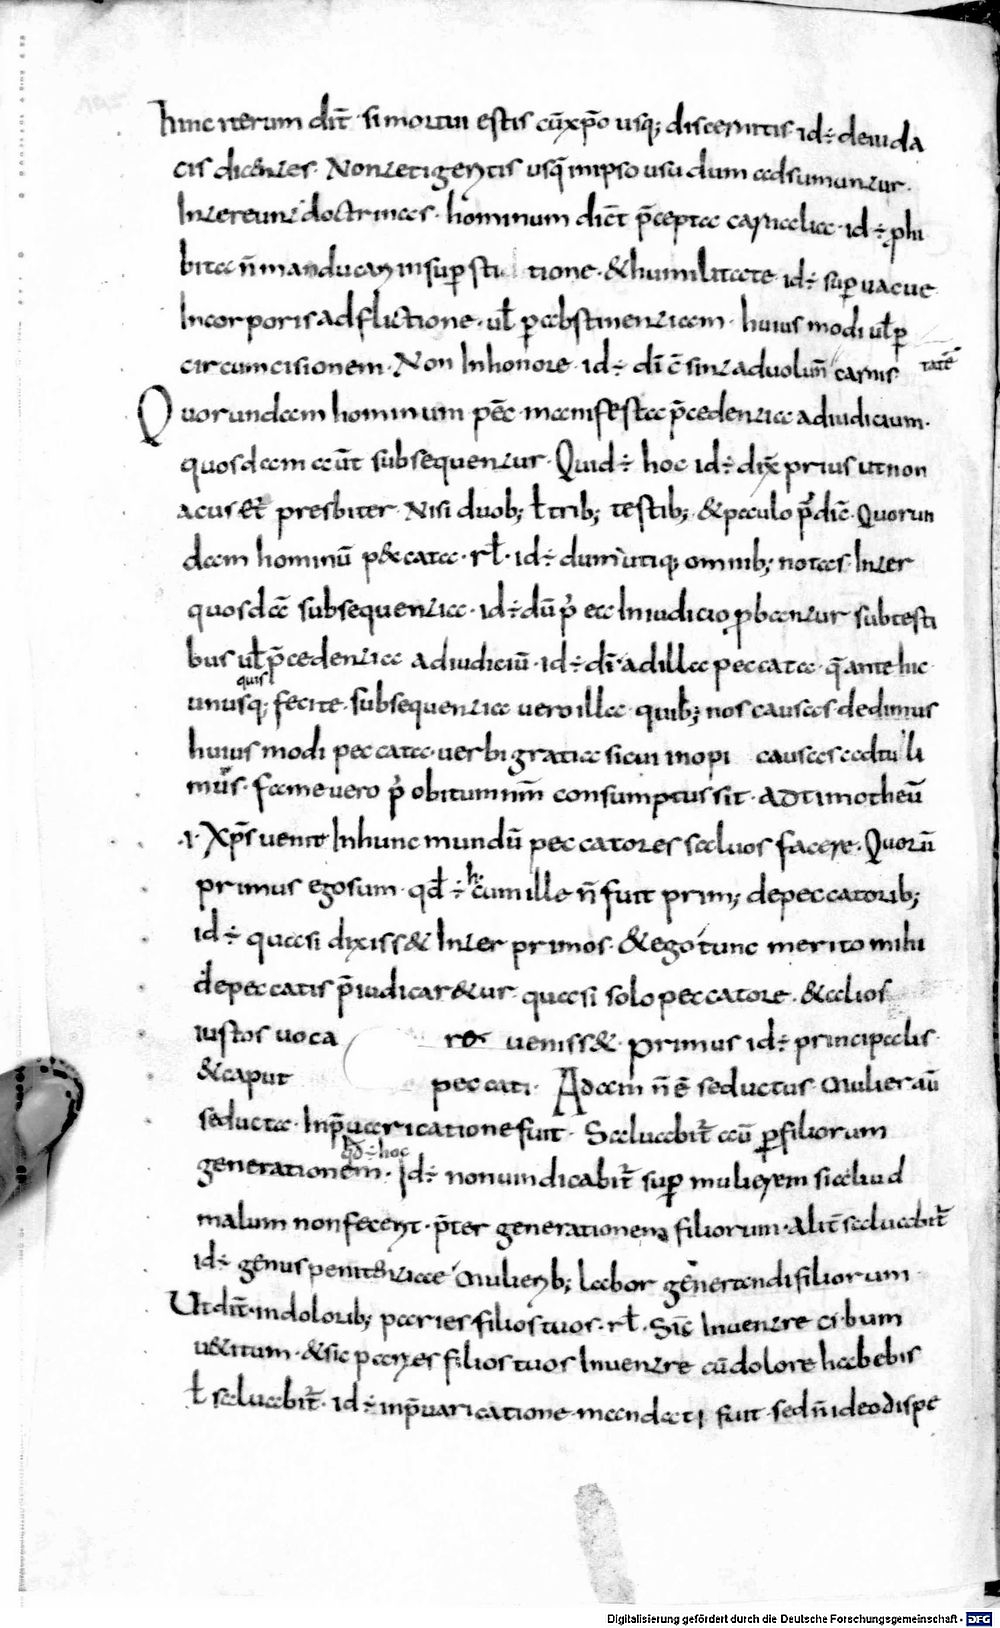 hinc iterum dit̄ · si mortui estis cū xp̄o usq; discernitis · id ÷ de iuda
cis dicentes · Non tetigeritis usq̄ in ipso usu dum adsumuntur ·
Intereunt doctrinas · hominum dic̄t p̄cepta carnalia · id ÷ phi
bita n̄ manducari in sup̄sti tione · & humilitate id ÷ sup̄ vacue
In corporis adflictione · ul̄ p̄ abstinentiam · huius modi ul̄ p̄
circumcisionem · Non In honore · id ÷ dī c̄ sint ad volun̄ carnis tatē
Quorundam hominum pēc · manifesta p̄cedentia ad iudicium ·
quosdam aūt subsequentur · Quid ÷ hoc id ÷ dix̄ prius ut non
acuset̄ presbiter · Nisi duob; ł trib; testib; & paulo p̄dic̄ · Quorun
dam hominū p&cata · rl̄ · id ÷ dum utiq; omnib; notas · Inter
quosdā subsequentia · id ÷ dū p̄ ea In iudicio p̄bantur sub testi
bus ul̄ p̄cedentia ad iudiciū · id ÷ dī · ad illa peccata · q̄ ante hic
quis
unusq; fecite · subsequentia vero illa · quib; nos causas dedimus
huius modi peccata · verbi gratia sicui inopi causas adtuli
mus · fame vero p̄ obitum nm̄ consumptus sit · ad timotheū
·i· Xp̄s uenit In hunc mundū peccatores saluos facere · Quorū
primus ego sum · qd̄ ÷ h̄ cum ille n̄ fuit prim; de peccatorib;
id ÷ quasi dixiss& Inter primos · & ego tunc merito mihi
de peccatis p̄iudicar&ur · quasi solo peccatore · & alios
iustos uoca re ueniss& · primus id ÷ principalis ·
& caput peccati · Adam n̄ ē seductus · Mulier aū
seducta · In p̄uaricatione fuit · Saluabit̄ aū p̄ filiorum
qd̄ ÷ hoc
generationem · Id ÷ non uindicabit̄ sup̄ mulierem si aliud
malum non fecerit · p̄ter generationem filiorum · alit̄ saluabit̄
id ÷ genus penitentiae mulierib; labor generandi filiorum
Ut dit̄ · in dolorib; paries filios tuos · rl̄ · Sic̄ Inuentre cibum
u&itum · & sic paries filios tuos Inuentre cū dolore habebis
ł saluabit̄ · id ÷ in p̄uaricatione mandati fuit · sed n̄ ideo dispe
Digitalisierung gefördert durch die Deutsche Forschungsgemeinschaft - DFG